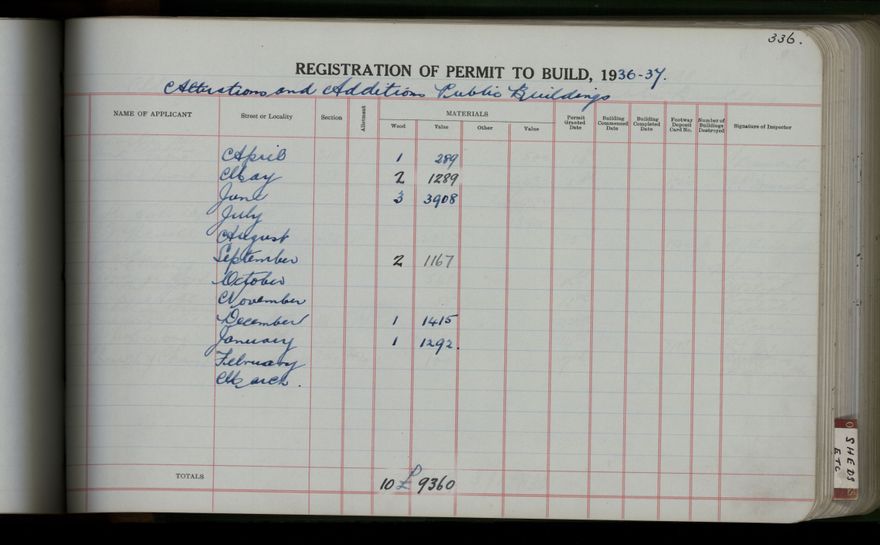 336.
REGISTRATION OF PERMIT TO BUILD, 1936-37.
Alterations and Additions Public Buildings
NAME OF APPLICANT Street or Locality Section Allotment MATERIALS Wood Value Other Value Permit Granted Date Building Commenced Date Building Completed Date Footway Deposit Card No. Number of Buildings Destroyed Signature of Inspector
April 1 289
May 2 1289
June 3 3908
July
August
September 2 1167
October
November
December 1 1415
January 1 1292.
February
March.
TOTALS 10 £ 9360
SHEDS
ETC